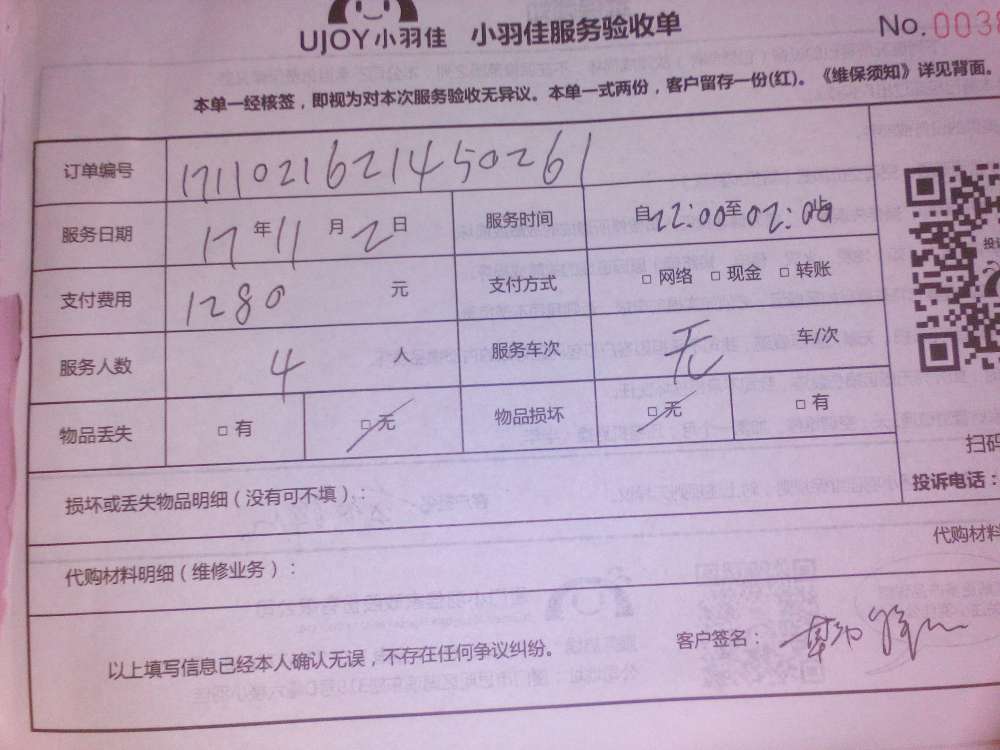 UJOY小羽佳 小羽佳服务验收单 No.003
本单一经核签，即视为对本次服务验收无异议。本单一式两份，客户留存一份(红)。《维保须知》详见背面。
订单编号 1711021621450261
服务日期 17年11月2日 服务时间 自22:00至02:00止
支付费用 1280 元 支付方式 □ 网络 □ 现金 □ 转账
服务人数 4 人 服务车次 无 车/次
物品丢失 □ 有 □ 无 物品损坏 □ 无 □ 有
扫码
损坏或丢失物品明细（没有可不填）： 投诉电话：
代购材料
代购材料明细（维修业务）：
以上填写信息已经本人确认无误，不存在任何争议纠纷。 客户签名：